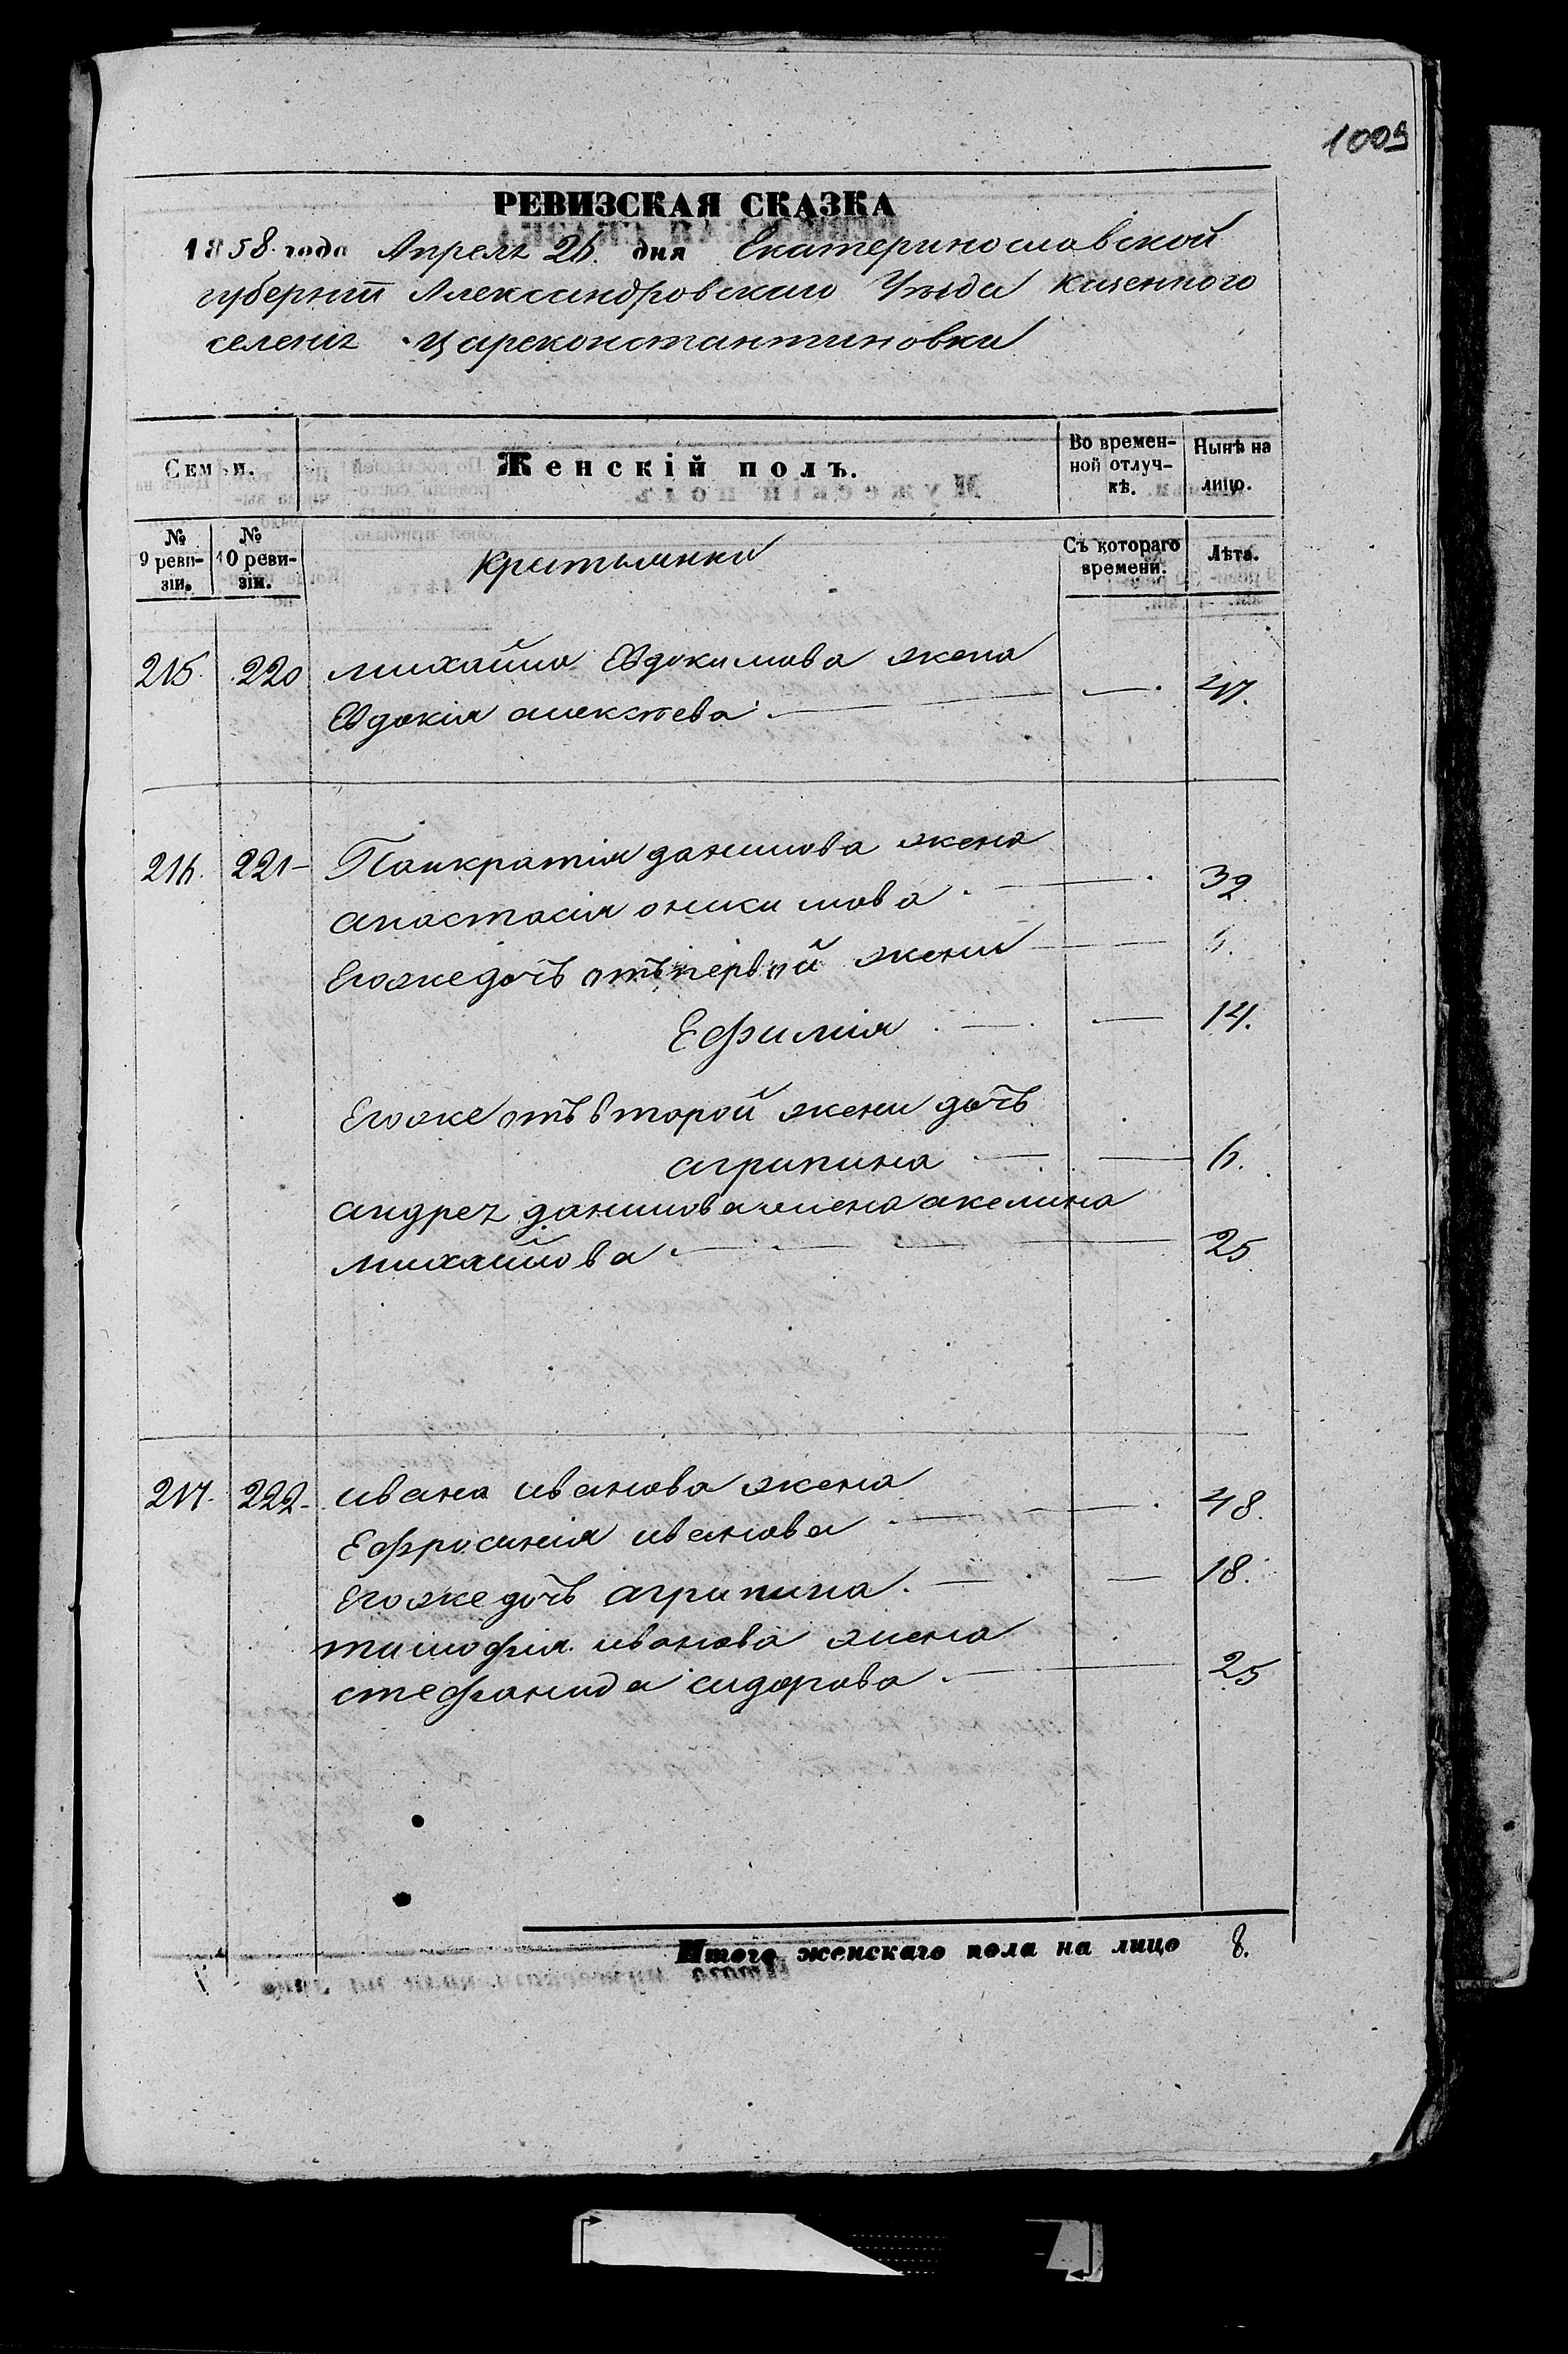 1009
РЕВИЗСКАЯ СКАЗКА
1858 года Апреля 26 дня Екатеринославской
губерніи Александровскаго Уѣзда казенного
селенія Цареконстантиновки
Семьи.
Женскій полъ.
Во времен-
ной отлуч-
кѣ.
Нынѣ на
лицо.
№
9 реви-
зіи.
№
10 реви-
зіи.
Крестьянки
Съ котораго
времени.
Лѣта.
215. 220 михайла Евдокимова жена
Евдокія алексѣева 47.
216. 221 Панкратія данилова жена
анастасія 32
Егоже дочь отъ первой жени
Ефимія 14.
Егоже отъ второй жени дочь
агрипина 6.
андрея данилова жена акелина
михайлова 25
217. 222 ивана иванова жена
Ефросинія иванова 48.
Егоже дочь агрипина 18.
тимофея иванова жена
стефанида сидорова 25
Итого женскаго пола на лицо 8.